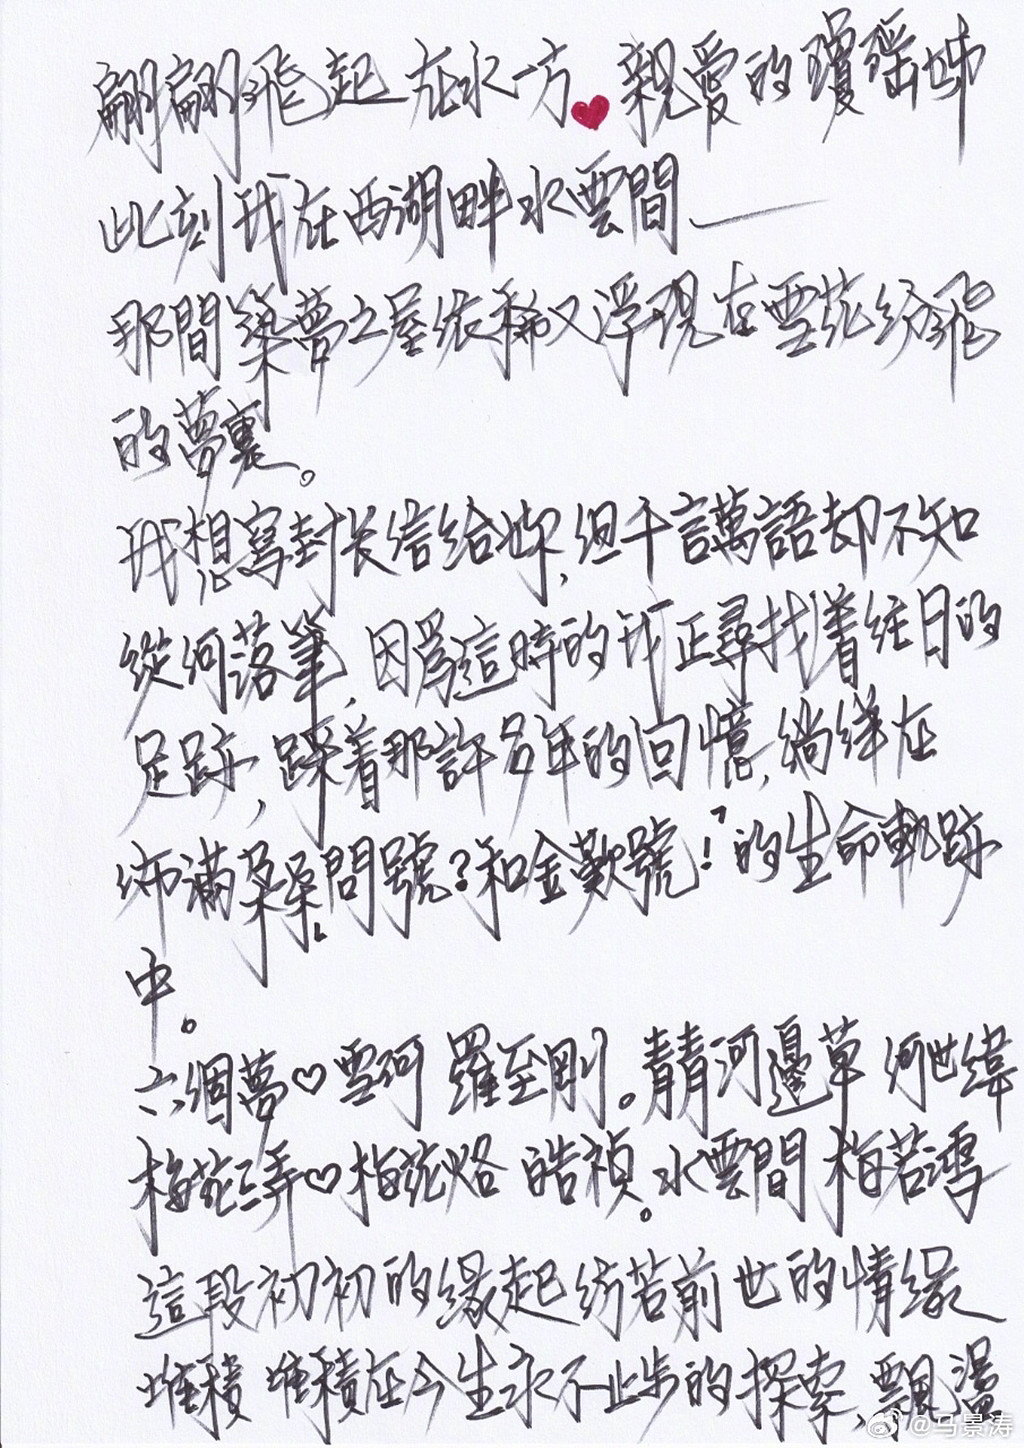 翩翩飛起 在水一方❤親愛的瓊瑤姊
此刻我在西湖畔水雲間——
那間築夢之屋依稀又浮現在雪花紛飛
的夢裏。
我想寫封长信給妳,但千言萬語却不知
從何落筆,因爲這時的我正尋找着往日的
足跡,踩着那許多年的回憶,徜徉在
佈滿朵朵問號?和金歎號!的生命軌跡
中。
六個夢♡雪珂 羅至剛。青青河邊草 何世緯
梅花三弄♡梅花烙 皓禎。水雲間 梅若鴻
這段初初的缘起彷若前世的情缘
堆積 堆積在今生永不止步的探索,飄盪
@马景涛